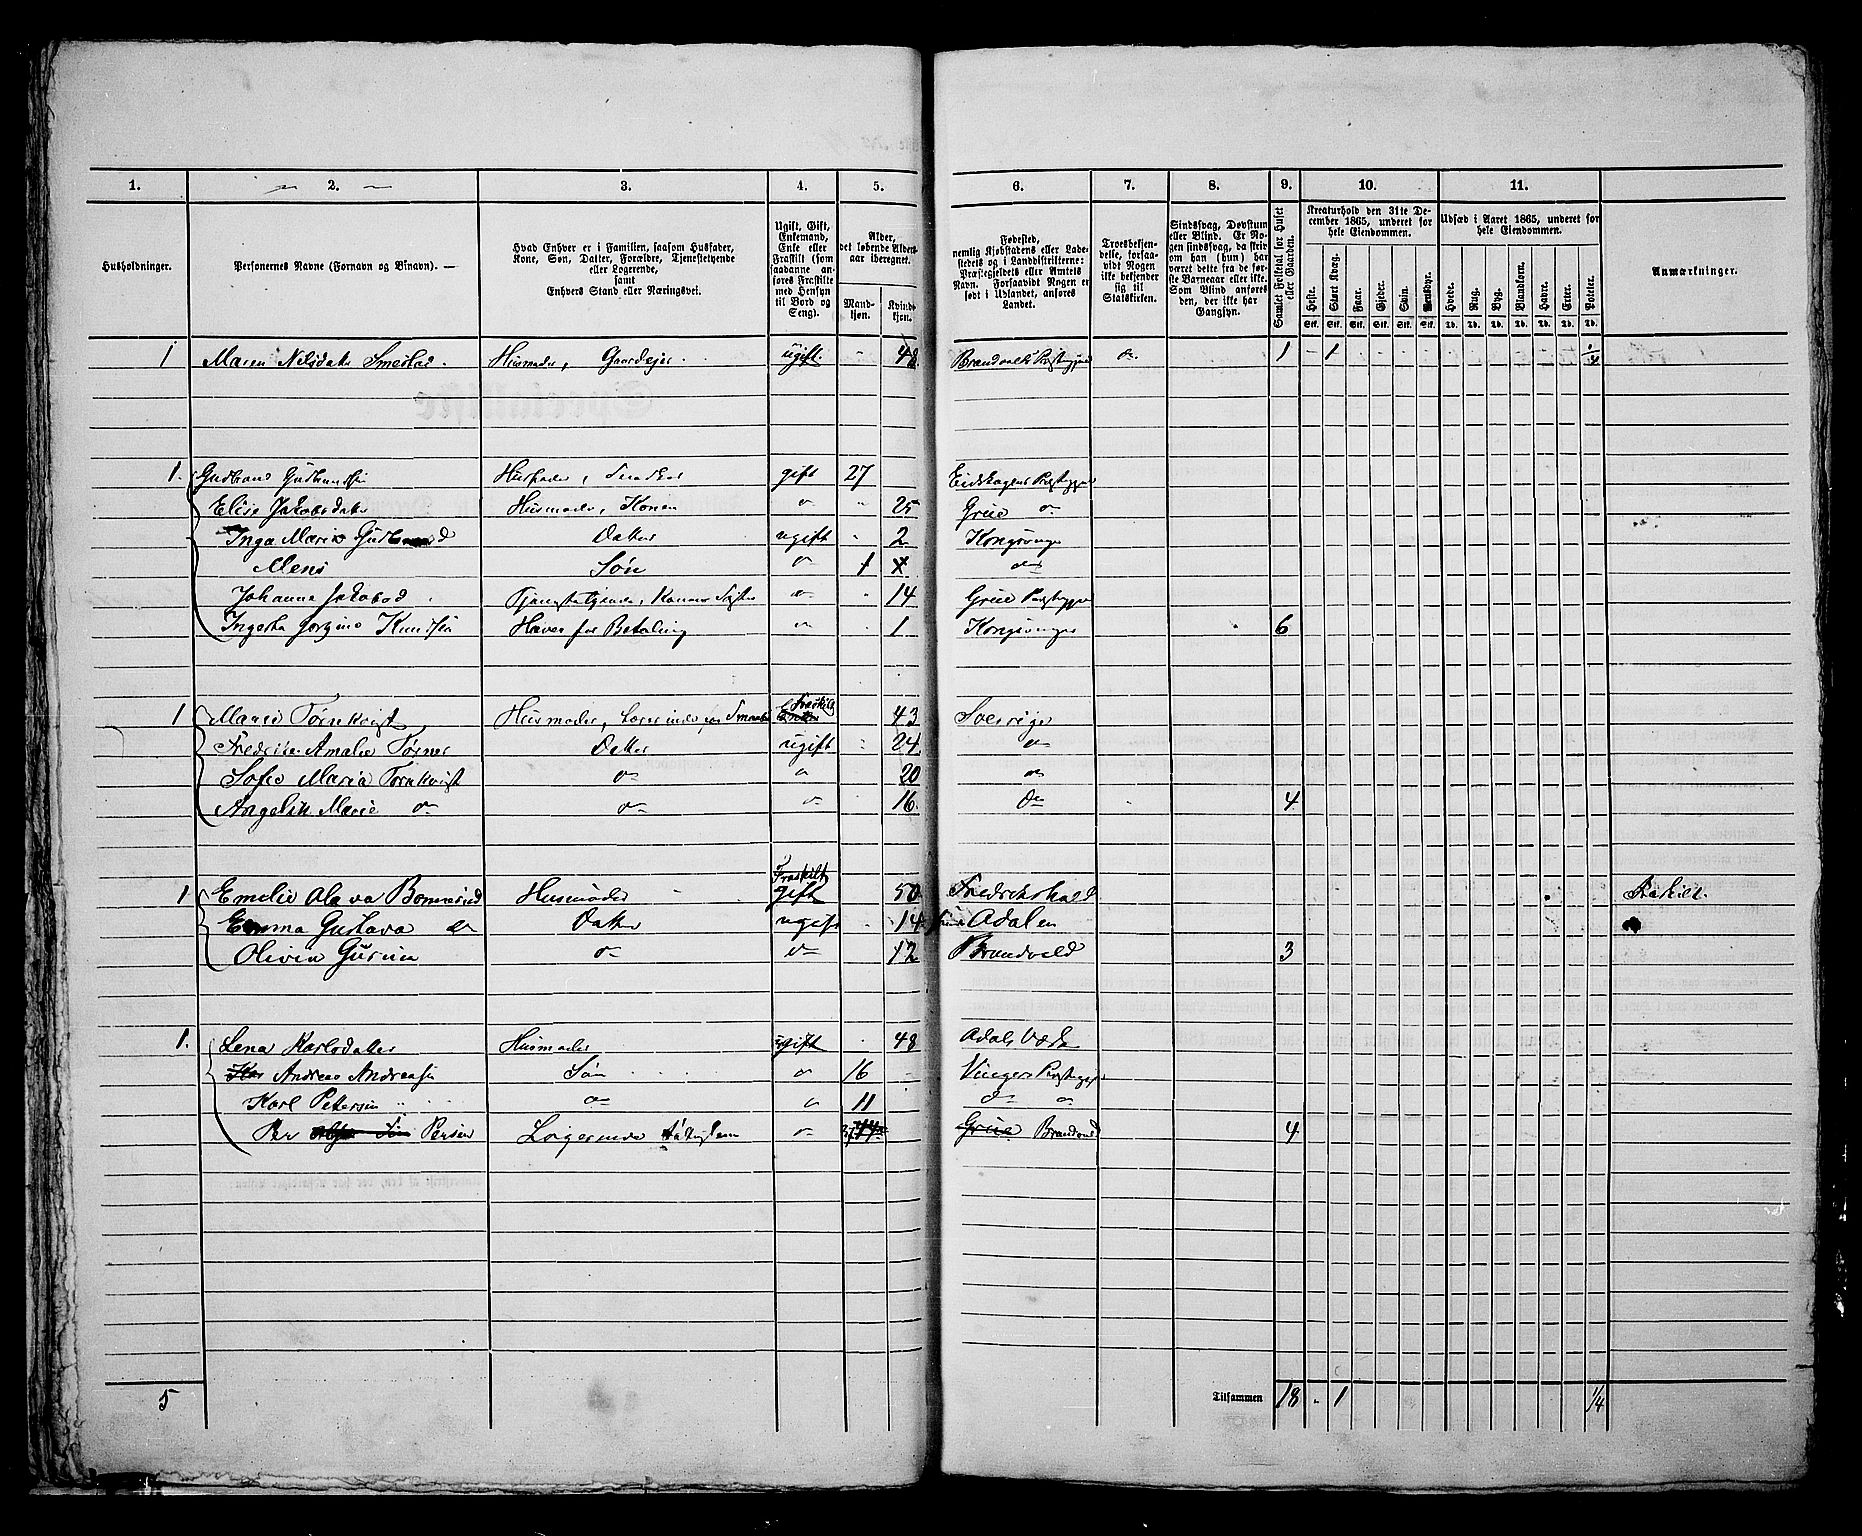 1. 2. 3. 4. 5. 6. 7. 8. 9. 10. 11.
Husholdninger.
Personernes Navne (Fornavn og Tilnavn).
Hvad Enhver er i Familien, saasom Husfader, Kone, Søn, Datter, Forældre, Tjenestetyende eller Logerende, samt Enhvers Stand eller Næringsvei.
Ugift, Gift, Enkemand, Enke eller Fraskilt (som saadanne anføres Fraskilte med Hensyn til Bord og Seng).
Alder, det løbende Aldersaar iberegnet.
Mandkjøn. Kvindekjøn.
Fødested, nemlig Kjøbstadens eller Ladestedets og i Landdistrikterne: Præstegjeldets eller Amtets Navn. Forsaavidt Nogen er født i Udlandet, anføres Landet.
Troesbekjendelse, forsaavidt Nogen ikke bekjender sig til Statskirken.
Sindssvag, Døvstum eller Blind. Er Nogen sindssvag, da skrives om han (hun) har været dette fra de første Barneaar eller ikke. Som Blind anføres den, der ikke har Gangsyn.
Samlet Folketal for Huset eller Gaarden.
Kreaturhold den 31te December 1865, underet for hele Eiendommen.
Heste. Stort Kvæg. Faar. Gjeder. Sviin. Rensdyr.
Stk. Stk. Stk. Stk. Stk. Stk.
Udsæd i Aaret 1865, underet for hele Eiendommen.
Hvede. Rug. Byg. Blandkorn. Havre. Erter. Poteter.
Td. Td. Td. Td. Td. Td. Td.
Anmærkninger.
1 Maren Nilsdater Smestad Husmoder, Gaardejer ugift 48 Brandvolds Præstegjeld 1 1 1/4
1. Gudbrand Gudbrandsen Husfader, Snedker gift 27 Eidskogens Præstegjeld
Elise Jakobsdater Husmoder, Konen " 25 Grue "
Inga Marie Gudbrand Datter ugift 2 Kongsvinger
Mens Søn " 1 "
Johanne Jakobsd Tjenestetyende, Konens Søster " 14 Grue Præstegjeld
Knudsen Haves for Betaling " 1 Kongsvinger 6
1 Marie Törnkvist Husmoder, Fraskilt 43 Sverige
Fredrike Amalie Törner Datter ugift 24 "
Sofie Maria Törnkvist " " 20 "
Angelik Marie " " " 16 " 4
1 Emelie Husmoder Fraskilt gift 50 Fredrikshald Fraskilt
Emma Gustava " Datter ugift 14 Adalen
Olivia " " 12 Brandvold 3
1. Lena Karlsdatter Husmoder ugift 48 Adals Værk
Andreas Andreasen Søn " 16 Vinger Præstegjeld
Karl Petersen " " 11 " "
Per Persen Logerende " Grue Brandvold 4
5 Tilsammen 18 - 1 1/4